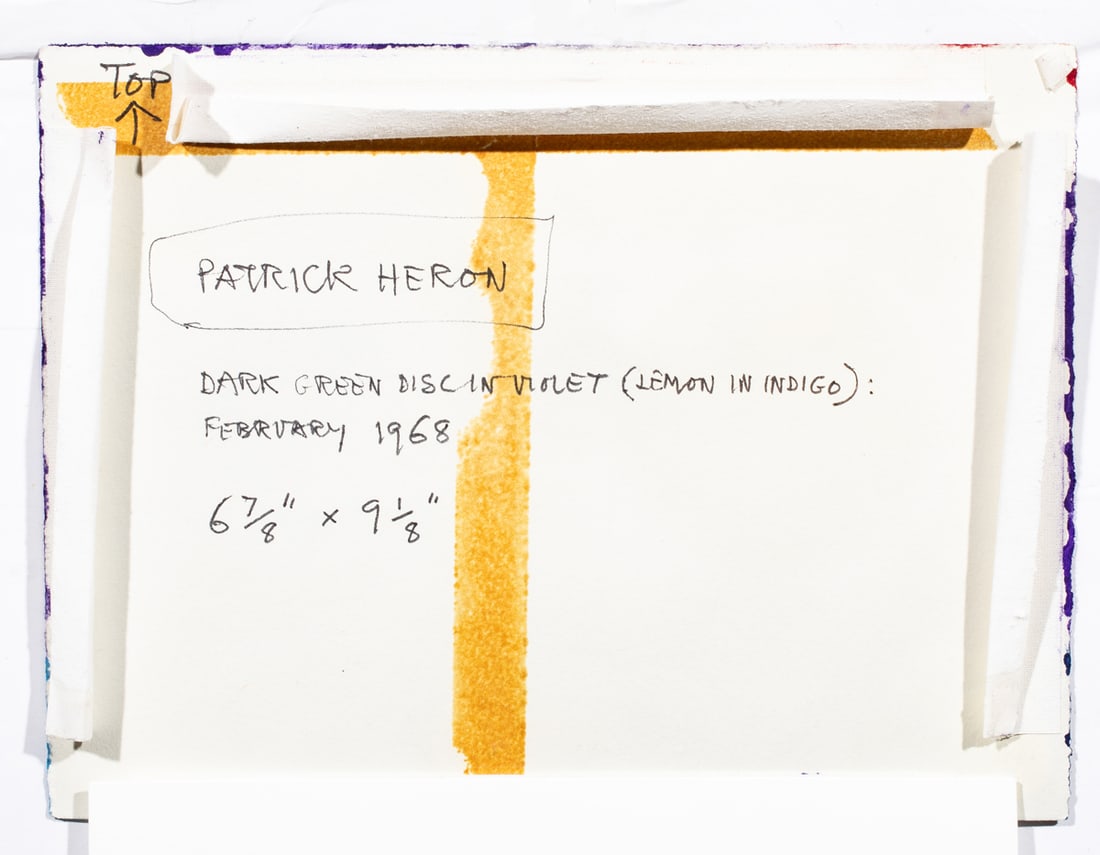 TOP
PATRICK HERON
DARK GREEN DISC IN VIOLET (LEMON IN INDIGO):
FEBRUARY 1968
6 7/8" × 9 1/8"